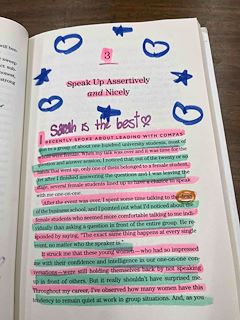 3
Speak Up Assertively
and Nicely
Sarah is the best
I RECENTLY SPOKE ABOUT LEADING WITH COMPAS-
sion to a group of about one hundred university students, most of
whom were female. When my talk was over and it was time for the
question and answer session, I noticed that, out of the twenty or so
hands that went up, only one of them belonged to a female student.
Yet after I finished answering the questions and I was leaving the
stage, several female students lined up to have a chance to speak
with me one-on-one.
After the event was over, I spent some time talking to the dean
of the business school, and I pointed out what I'd noticed about the
female students who seemed more comfortable talking to me indi-
vidually than asking a question in front of the entire group. He re-
sponded by saying, "The exact same thing happens at every single
event, no matter who the speaker is."
It struck me that these young women—who had so impressed
me with their confidence and intelligence in our one-on-one con-
versations—were still holding themselves back by not speaking
up in front of others. But it really shouldn't have surprised me.
Throughout my career, I've observed how many women have this
tendency to remain quiet at work in group situations. And, as you